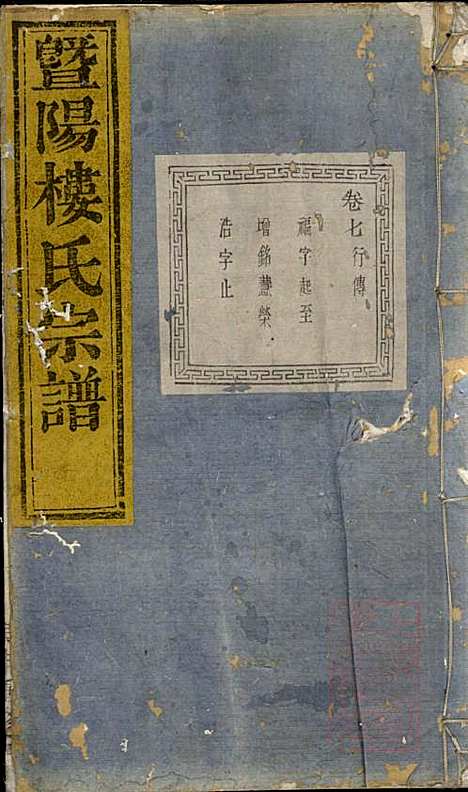 卷七行傳
福字起至
增銘藎榮
浩字止
暨陽樓氏宗譜